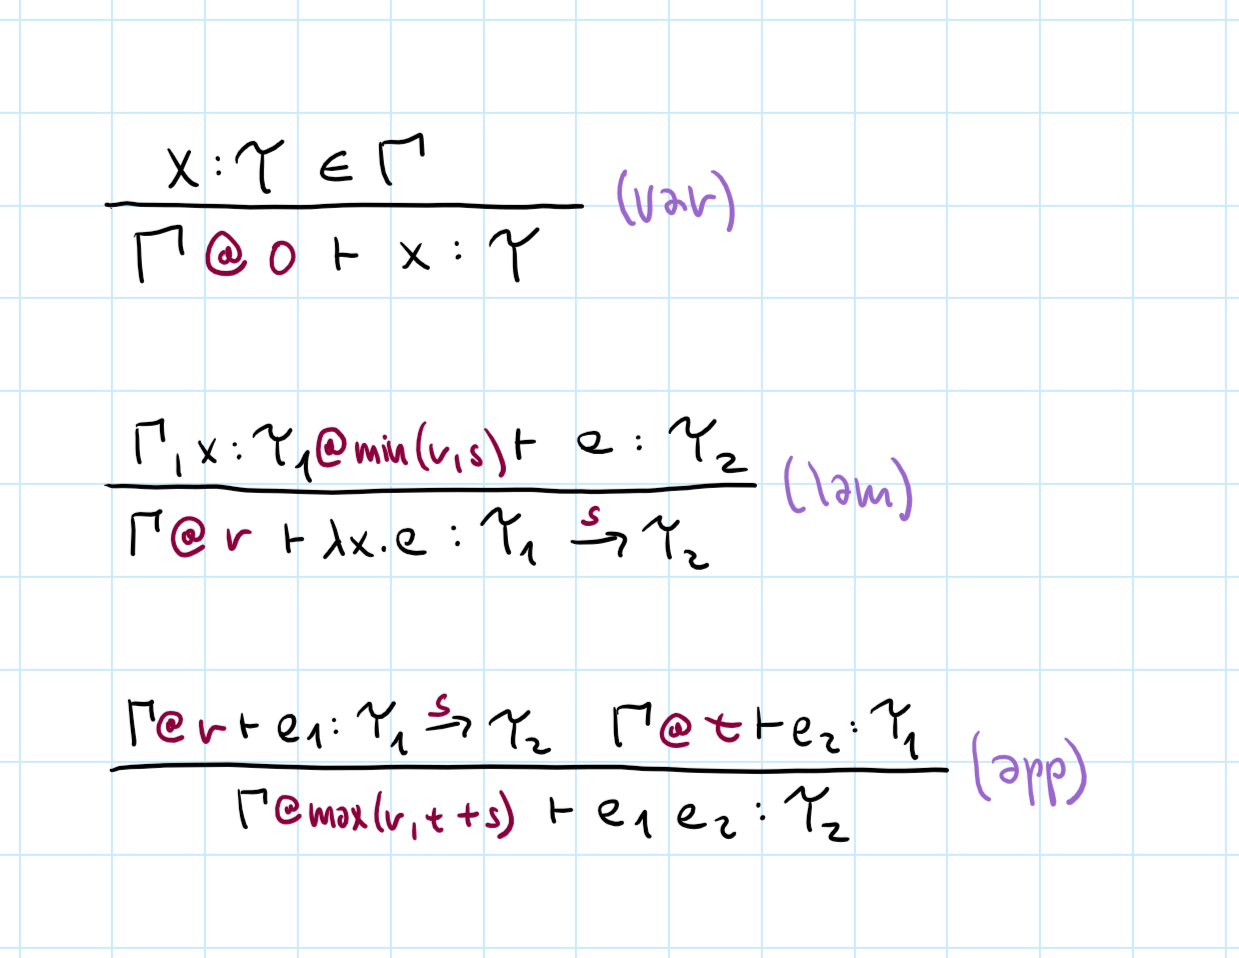 x : τ ∈ Γ
Γ @ 0 ⊢ x : τ (var)
Γ, x : τ₁ @ min(r, s) ⊢ e : τ₂
Γ @ r ⊢ λx.e : τ₁ →ˢ τ₂ (lam)
Γ @ r ⊢ e₁ : τ₁ →ˢ τ₂ Γ @ t ⊢ e₂ : τ₁
Γ @ max(r, t + s) ⊢ e₁ e₂ : τ₂ (app)